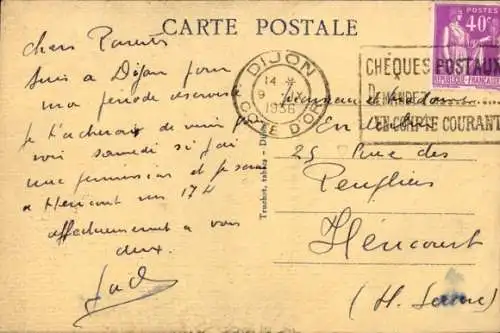 CARTE POSTALE
POSTES
40c
REPUBLIQUE FRANÇAISE
DIJON
14 - *
9 - IX
1936
COTE D'OR
CHÈQUES POSTAUX
DEMANDEZ
COMPTE COURANT
Chers Parents
Suis à Dijon pour
ma période
Je tâcherai de venir
voir samedi si j'ai
une permission et je serai
à Héricourt vers 17h
affectueusement à vous
deux.
Monsieur et Madame
25 Rue des
Peupliers
Héricourt
(H. Saone)